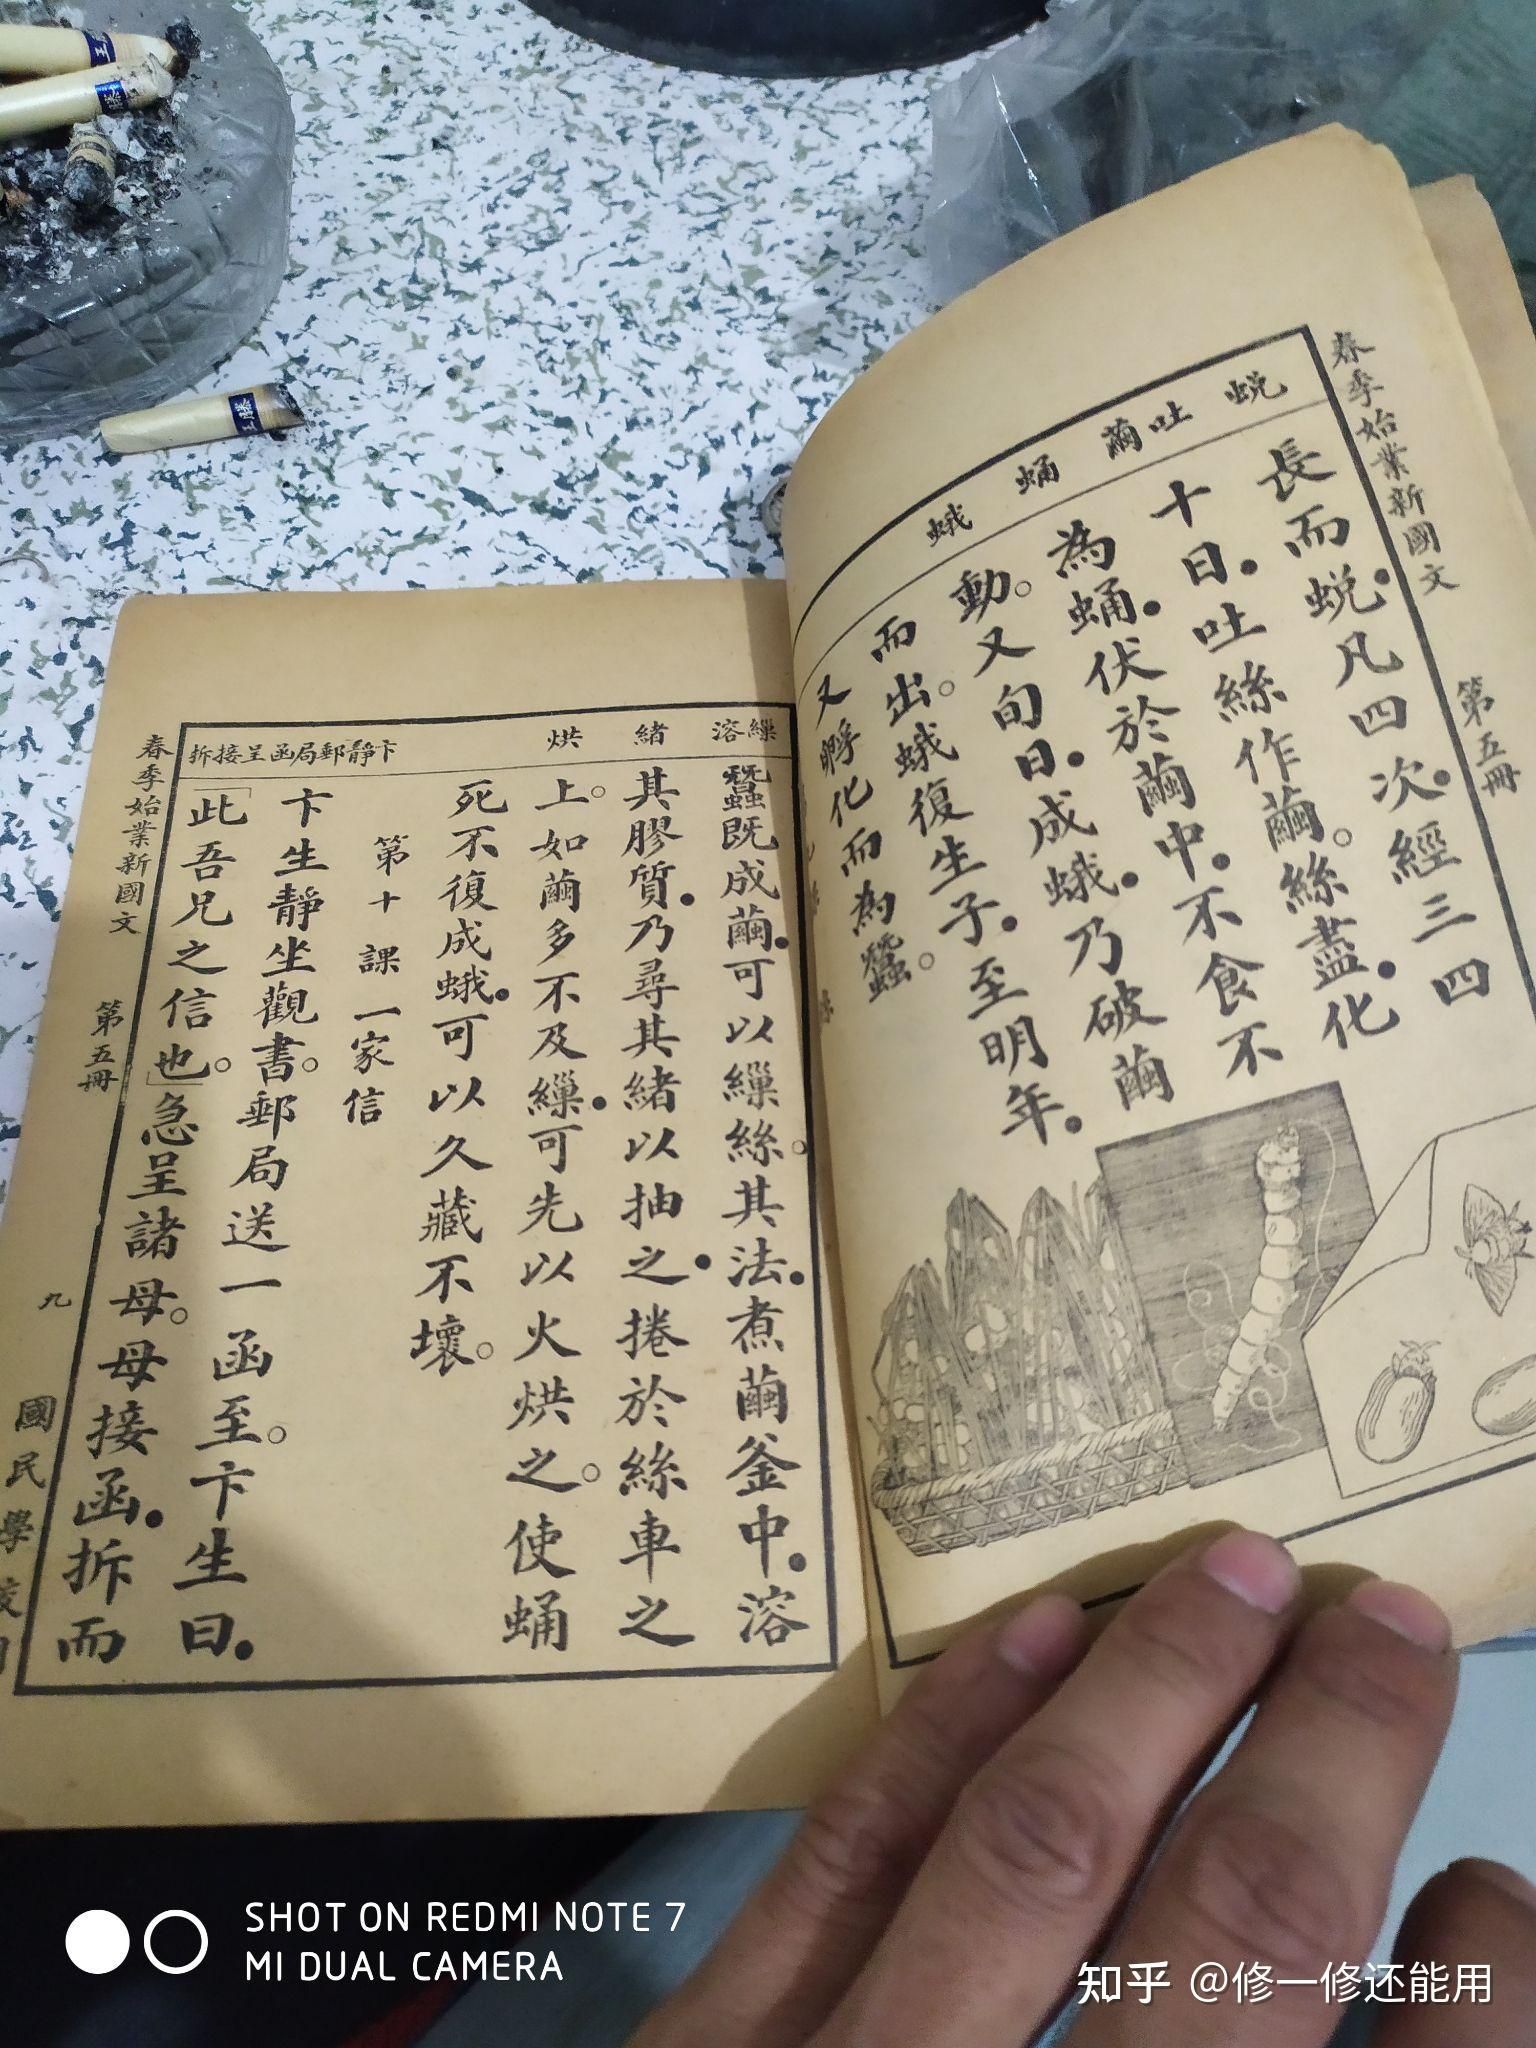 春季始業新國文
第五冊
蛻
吐
繭
蛹
蛾
長而蛻凡四次經三四
十日吐絲作繭絲盡化
為蛹伏於繭中不食不
動又旬日成蛾乃破繭
而出蛾復生子至明年
又孵化而為蠶
繅溶
緒
烘
卞靜郵局函呈接拆
蠶既成繭可以繅絲其法煮繭釜中溶
其膠質乃尋其緒以抽之捲於絲車之
上如繭多不及繅可先以火烘之使蛹
死不復成蛾可以久藏不壞
第十課 一家信
卞生靜坐觀書郵局送一函至卞生曰
「此吾兄之信也」急呈諸母母接函拆而
春季始業新國文
第五冊
九
國民學校
王
滕
王滕
SHOT ON REDMI NOTE 7
MI DUAL CAMERA
知乎 @修一修还能用